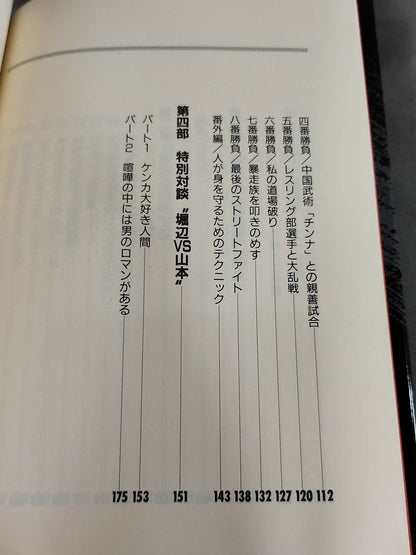 四番勝負／中国武術「チンナ」との親善試合 112
五番勝負／レスリング部選手と大乱戦 120
六番勝負／私の道場破り 127
七番勝負／暴走族を叩きのめす 132
八番勝負／最後のストリートファイト 138
番外編／人が身を守るためのテクニック 143
第四部 特別対談〝堀辺VS山本〟 151
パート1 ケンカ大好き人間 153
パート2 喧嘩の中には男のロマンがある 175